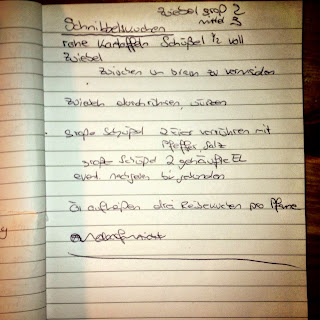 Zwiebel groß 2
mittel 3
Schnibbelskuchen
rohe Kartoffeln Schüßel 1/2 voll
Zwiebel
Zwischen um braun zu vermeiden
Zwiebeln durchrühren, würzen
große Schüßel 2 Eier verrühren mit
Pfeffer, Salz
große Schüßel 2 gehäufte EL
evtl.
Öl aufheißen drei Reibekuchen pro Pfanne